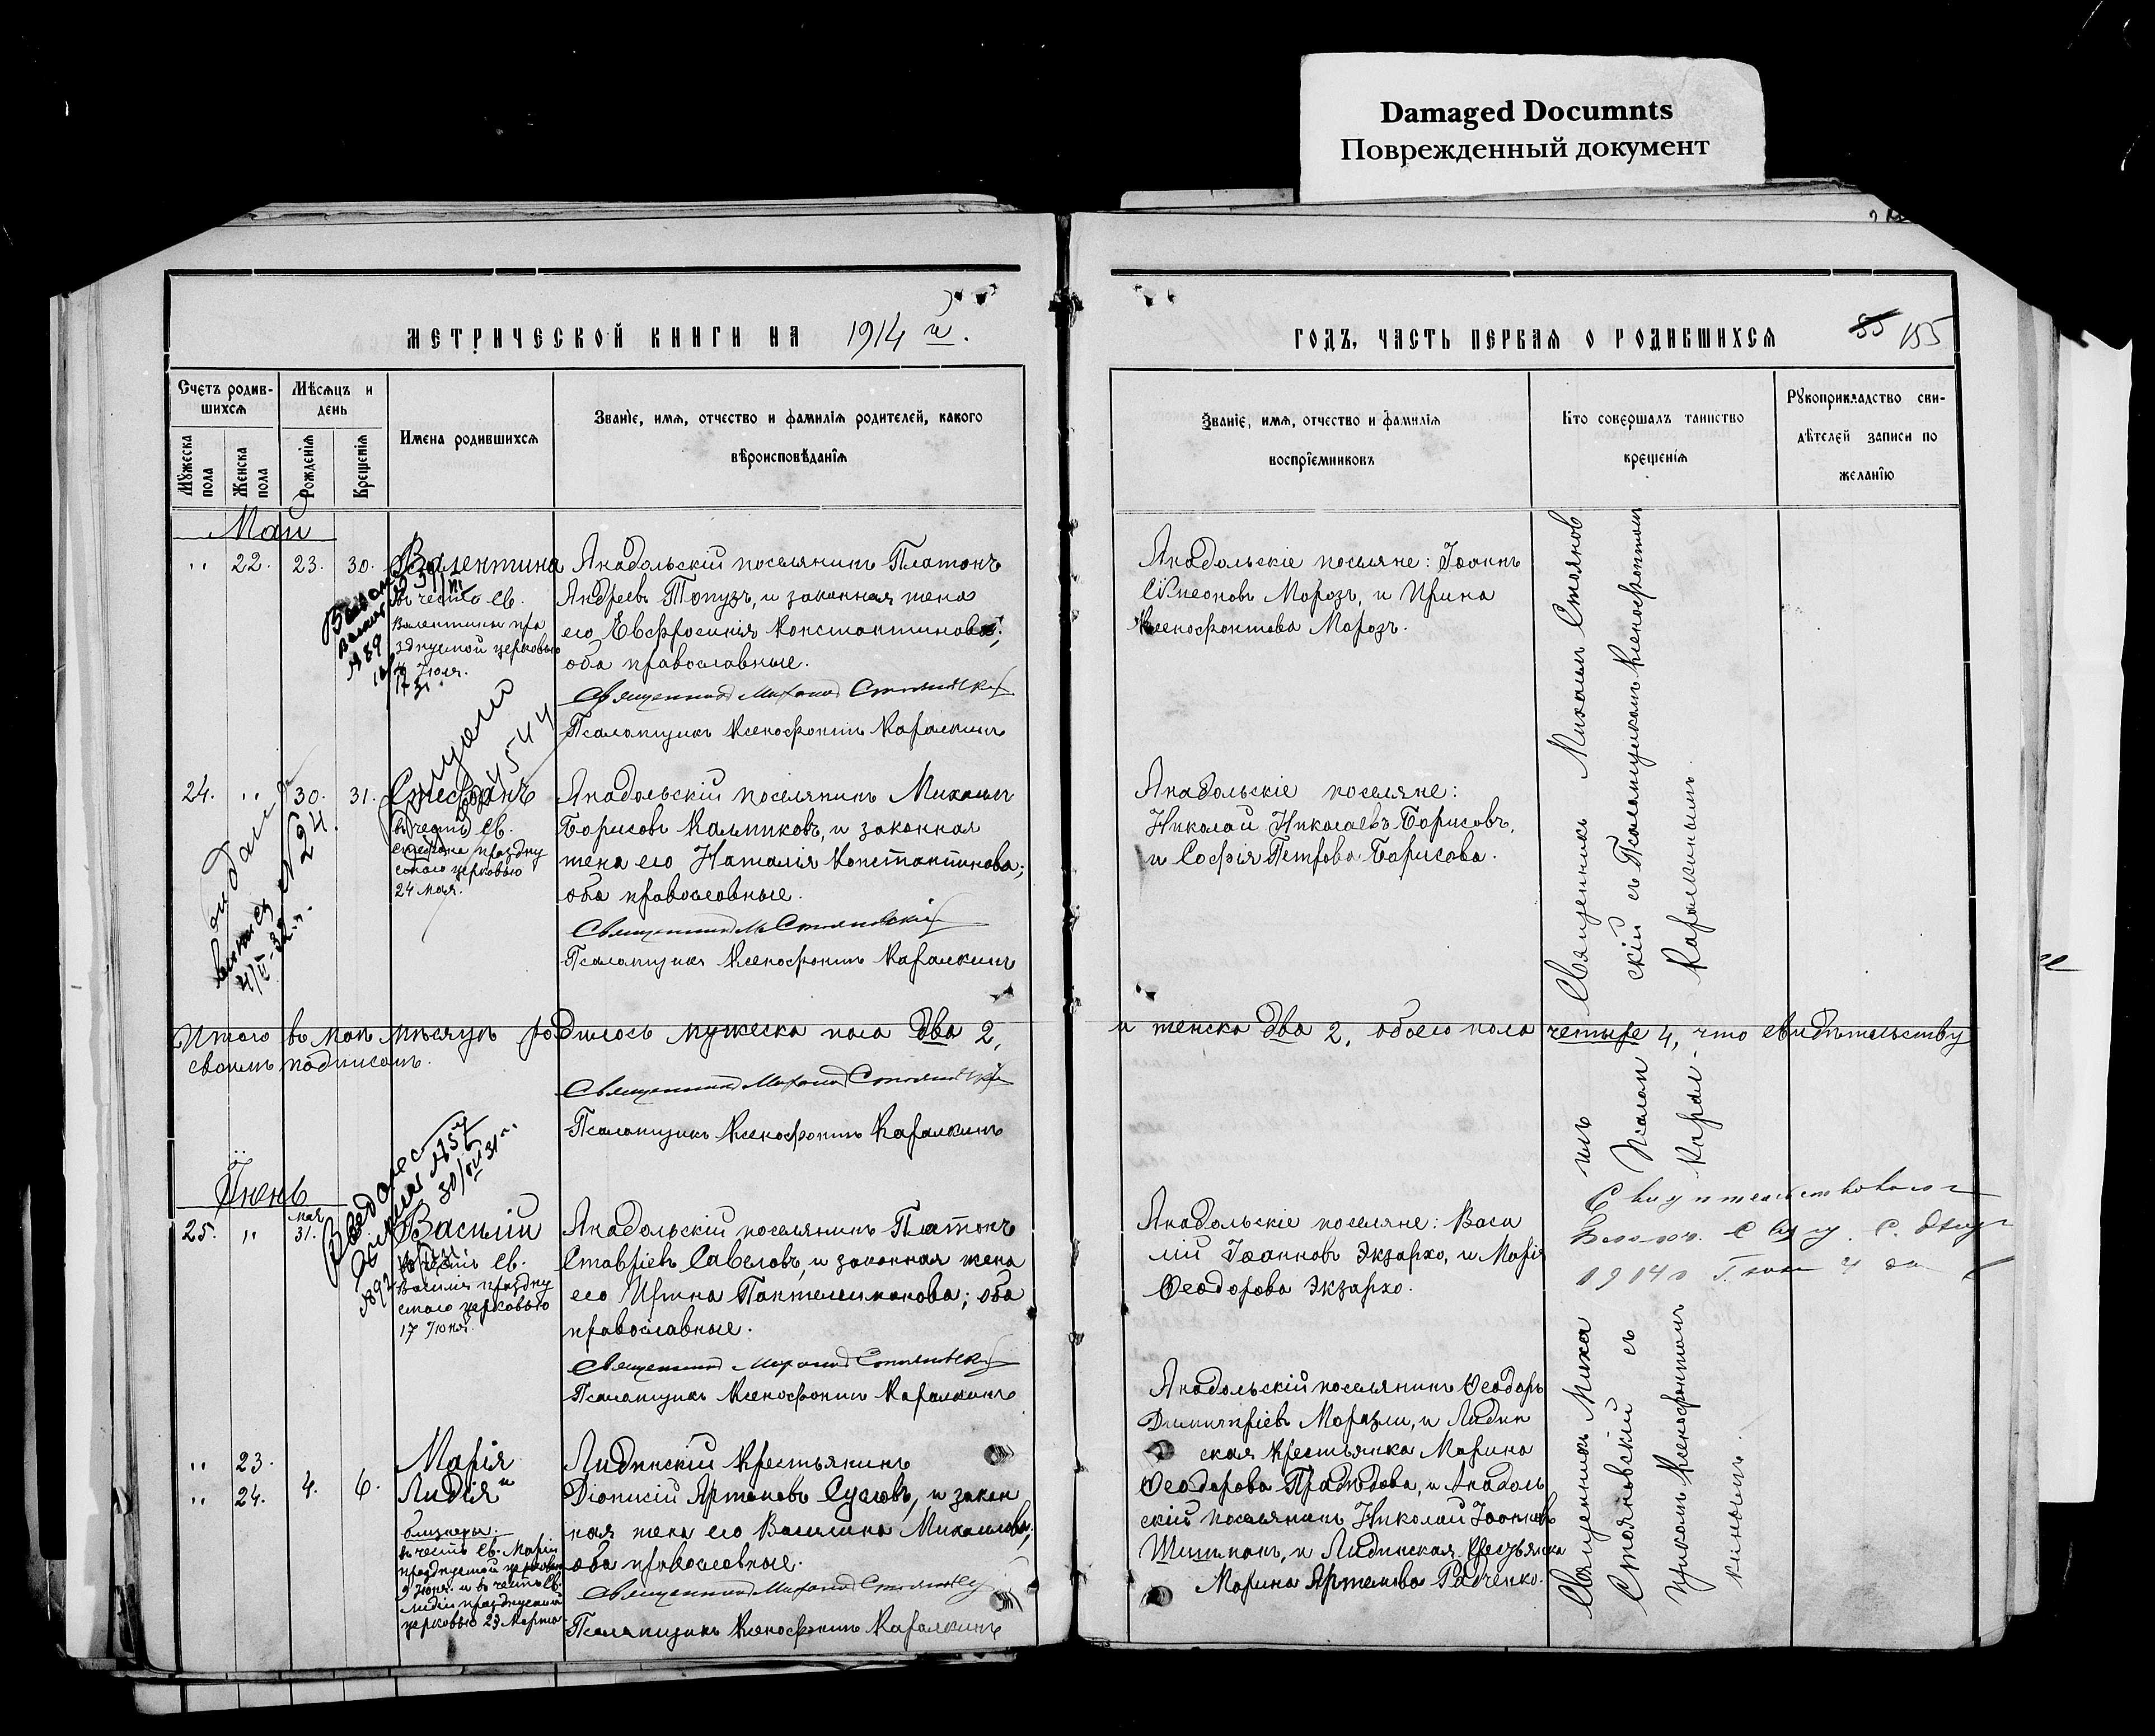 Damaged Documnts
Поврежденный документ
МЕТРИЧЕСКОЙ КНИГИ НА 1914 й.
Счетъ родив-
шихся
Мѣсяцъ и
день
Мужеска
пола
Женска
пола
Рожденія
Крещенія
Имена родившихся
Званіе, имя, отчество и фамилія родителей, какого
вѣроисповѣданія
Май
" 22. 23. 30. Валентина
въ честь св.
Валентины пра
зднуемой церковью
Іюля.
Анадольскій поселянинъ Платонъ
Андреевъ Топузъ, и законная жена
его Евфросинія Константинова;
оба православные.
Священникъ Михаилъ Стояновскій
Псаломщикъ Ксенофонтъ Каракинъ
24. " 30. 31. Стефанъ
въ честь св.
Стефана праздну
емаго церковью
24 мая.
Анадольскій поселянинъ Михаилъ
Борисовъ Калмиковъ, и законная
жена его Наталія Константинова;
оба православные.
Священникъ М Стояновскій
Псаломщикъ Ксенофонтъ Каракинъ
Итого въ маѣ мѣсяцѣ родилось мужеска пола два 2,
своимъ подписомъ.
Священникъ Михаилъ Стояновскій
Псаломщикъ Ксенофонтъ Каракинъ
Іюнь
25. " мая 31. Василій
въ честь св.
Василія праздну
емаго церковью
17 Іюня.
Анадольскій поселянинъ Платонъ
Ставріевъ Савеловъ, и законная жена
его Ирина Пантелимонова; оба
православные.
Священникъ Михаилъ Стояновскій
Псаломщикъ Ксенофонтъ Каракинъ
" 23. Марія
и
" 24. 4. 6. Лидія
близнецы.
въ честь св. Маріи
празднуемой церковью
9 Іюня. и въ честь св.
Лидіи празднуемой
церковью 23 Марта.
Лидинскій крестьянинъ
Діонисій Артемовъ Сусловъ, и закон
ная жена его Василина Михаилова;
оба православные.
Священникъ Михаилъ Стояновскій
Псаломщикъ Ксенофонтъ Каракинъ
ГОДЪ, ЧАСТЬ ПЕРВАЯ О РОДИВШИХСЯ
85 155
Званіе, имя, отчество и фамилія
воспріемниковъ
Кто совершалъ таинство
крещенія
Рукоприкладство сви-
дѣтелей записи по
желанію
Анадольскіе поселяне: Іоаннъ
Симеоновъ Морозъ, и Ирина
Ксенофонтова Морозъ.
Анадольскіе поселяне:
Николай Николаевъ Борисовъ,
и Софія Петрова Борисова.
Священникъ Михаилъ Стоянов
скій съ Псаломщикомъ Ксенофонтомъ
Каракинымъ.
и женска два 2, обоего пола четыре 4, что свидѣтельству
емъ
Анадольскіе поселяне: Васи
лій Іоанновъ Экзархо, и Марія
Ѳеодорова Экзархо.
Анадольскій поселянинъ Ѳеодоръ
Димитріевъ Моразли, и Лидин
ская крестьянка Марина
Ѳеодорова Прадѣдова, и Анадоль
скій поселянинъ Николай Іоанновъ
Шишманъ, и Лидинская крестьянка
Марина Артемова Радченко.
Священникъ Миха
Стояновскій съ
щикомъ Ксенофонтомъ